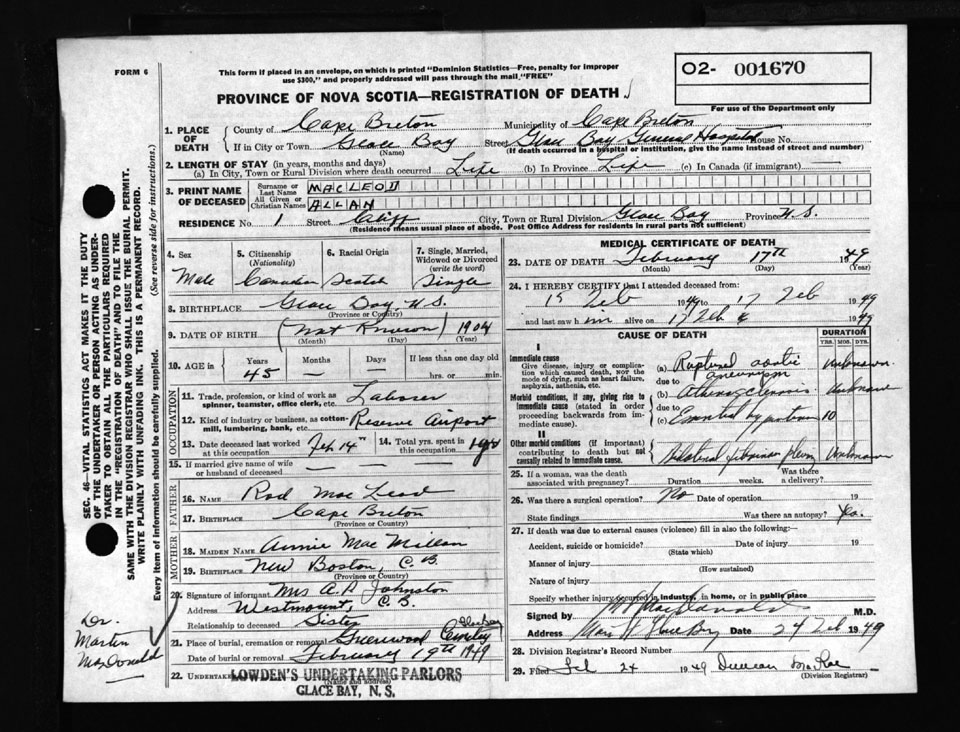 FORM 6
This form if placed in an envelope, on which is printed "Dominion Statistics—Free, penalty for improper
use $300," and properly addressed will pass through the mail "FREE"
O2- 001670
For use of the Department only
PROVINCE OF NOVA SCOTIA—REGISTRATION OF DEATH
1. PLACE OF DEATH
County of Cape Breton Municipality of Cape Breton
If in City or Town Glace Bay (Name) Street Glace Bay General Hospital House No.
(If death occurred in a hospital or institution, give the name instead of street and number)
2. LENGTH OF STAY (in years, months and days)
(a) In City, Town or Rural Division where death occurred Life (b) In Province Life (c) In Canada (if immigrant) —
3. PRINT NAME OF DECEASED
Surname or Last Name MACLEOD
All Given or Christian Names ALLAN
RESIDENCE No. 1 Street Cliff City, Town or Rural Division Glace Bay Province N.S.
(Residence means usual place of abode. Post Office Address for residents in rural parts not sufficient)
SEC. 46—VITAL STATISTICS ACT MAKES IT THE DUTY
OF THE UNDERTAKER OR PERSON ACTING AS UNDER-
TAKER TO OBTAIN ALL THE PARTICULARS REQUIRED
IN THE "REGISTRATION OF DEATH" AND TO FILE THE
SAME WITH THE DIVISION REGISTRAR WHO SHALL ISSUE THE BURIAL PERMIT.
WRITE PLAINLY WITH UNFADING INK. THIS IS A PERMANENT RECORD.
Every item of information should be carefully supplied. (See reverse side for instructions.)
4. Sex
Male
5. Citizenship (Nationality)
Canadian
6. Racial Origin
Scotch
7. Single, Married, Widowed or Divorced (write the word)
Single
8. BIRTHPLACE Glace Bay, N.S.
(Province or Country)
9. DATE OF BIRTH (Not Known) 1904
(Month) (Day) (Year)
10. AGE in Years Months Days If less than one day old
45 — — hrs. or min.
OCCUPATION
11. Trade, profession, or kind of work as spinner, teamster, office clerk, etc. Laborer
12. Kind of industry or business, as cotton-mill, lumbering, bank, etc. Reserve Airport
13. Date deceased last worked at this occupation Feb 14th 14. Total yrs. spent in this occupation
15. If married give name of wife or husband of deceased
FATHER
16. NAME Rod MacLeod
17. BIRTHPLACE Cape Breton
(Province or Country)
MOTHER
18. MAIDEN NAME Annie MacMillan
19. BIRTHPLACE New Boston, C.B.
(Province or Country)
20. Signature of informant Mrs A.P. Johnston
Address Westmount, C.B.
Relationship to deceased Sister
21. Place of burial, cremation or removal Greenwood Cemetery Glace Bay
Date of burial or removal February 19th 1949
22. Undertaker LOWDEN'S UNDERTAKING PARLORS
(Name and address)
GLACE BAY, N. S.
Dr.
Marten
MacDonald
MEDICAL CERTIFICATE OF DEATH
23. DATE OF DEATH February 17th 1949
(Month) (Day) (Year)
24. I HEREBY CERTIFY that I attended deceased from:
15 Feb 1949 to 17 Feb 1949
and last saw him alive on 17 Feb 1949
CAUSE OF DEATH
DURATION
YRS. MOS. DYS.
I
Immediate cause
Give disease, injury or complication which caused death, not the mode of dying, such as heart failure, asphyxia, asthenia, etc.
(a) Ruptured aortic aneurysm Unknown
due to
Morbid conditions, if any, giving rise to immediate cause (stated in order proceeding backwards from immediate cause).
(b) Atherosclerosis Unknown
due to
(c) Essential hypertension 10
II
Other morbid conditions (if important) contributing to death but not causally related to immediate cause.
Bilateral fibrinous pleurisy Unknown
25. If a woman, was the death associated with pregnancy? Duration weeks. Was there a delivery?
26. Was there a surgical operation? No Date of operation 19
State findings Was there an autopsy? Yes.
27. If death was due to external causes (violence) fill in also the following:—
Accident, suicide or homicide? Date of injury 19
(State which)
Manner of injury
(How sustained)
Nature of injury
Specify whether injury occurred in industry, in home, or in public place
Signed by MacDonald M.D.
Address Main St Glace Bay Date 24 Feb 1949
28. Division Registrar's Record Number
29. Filed Feb 24 1949 Duncan MacRae
(Division Registrar)